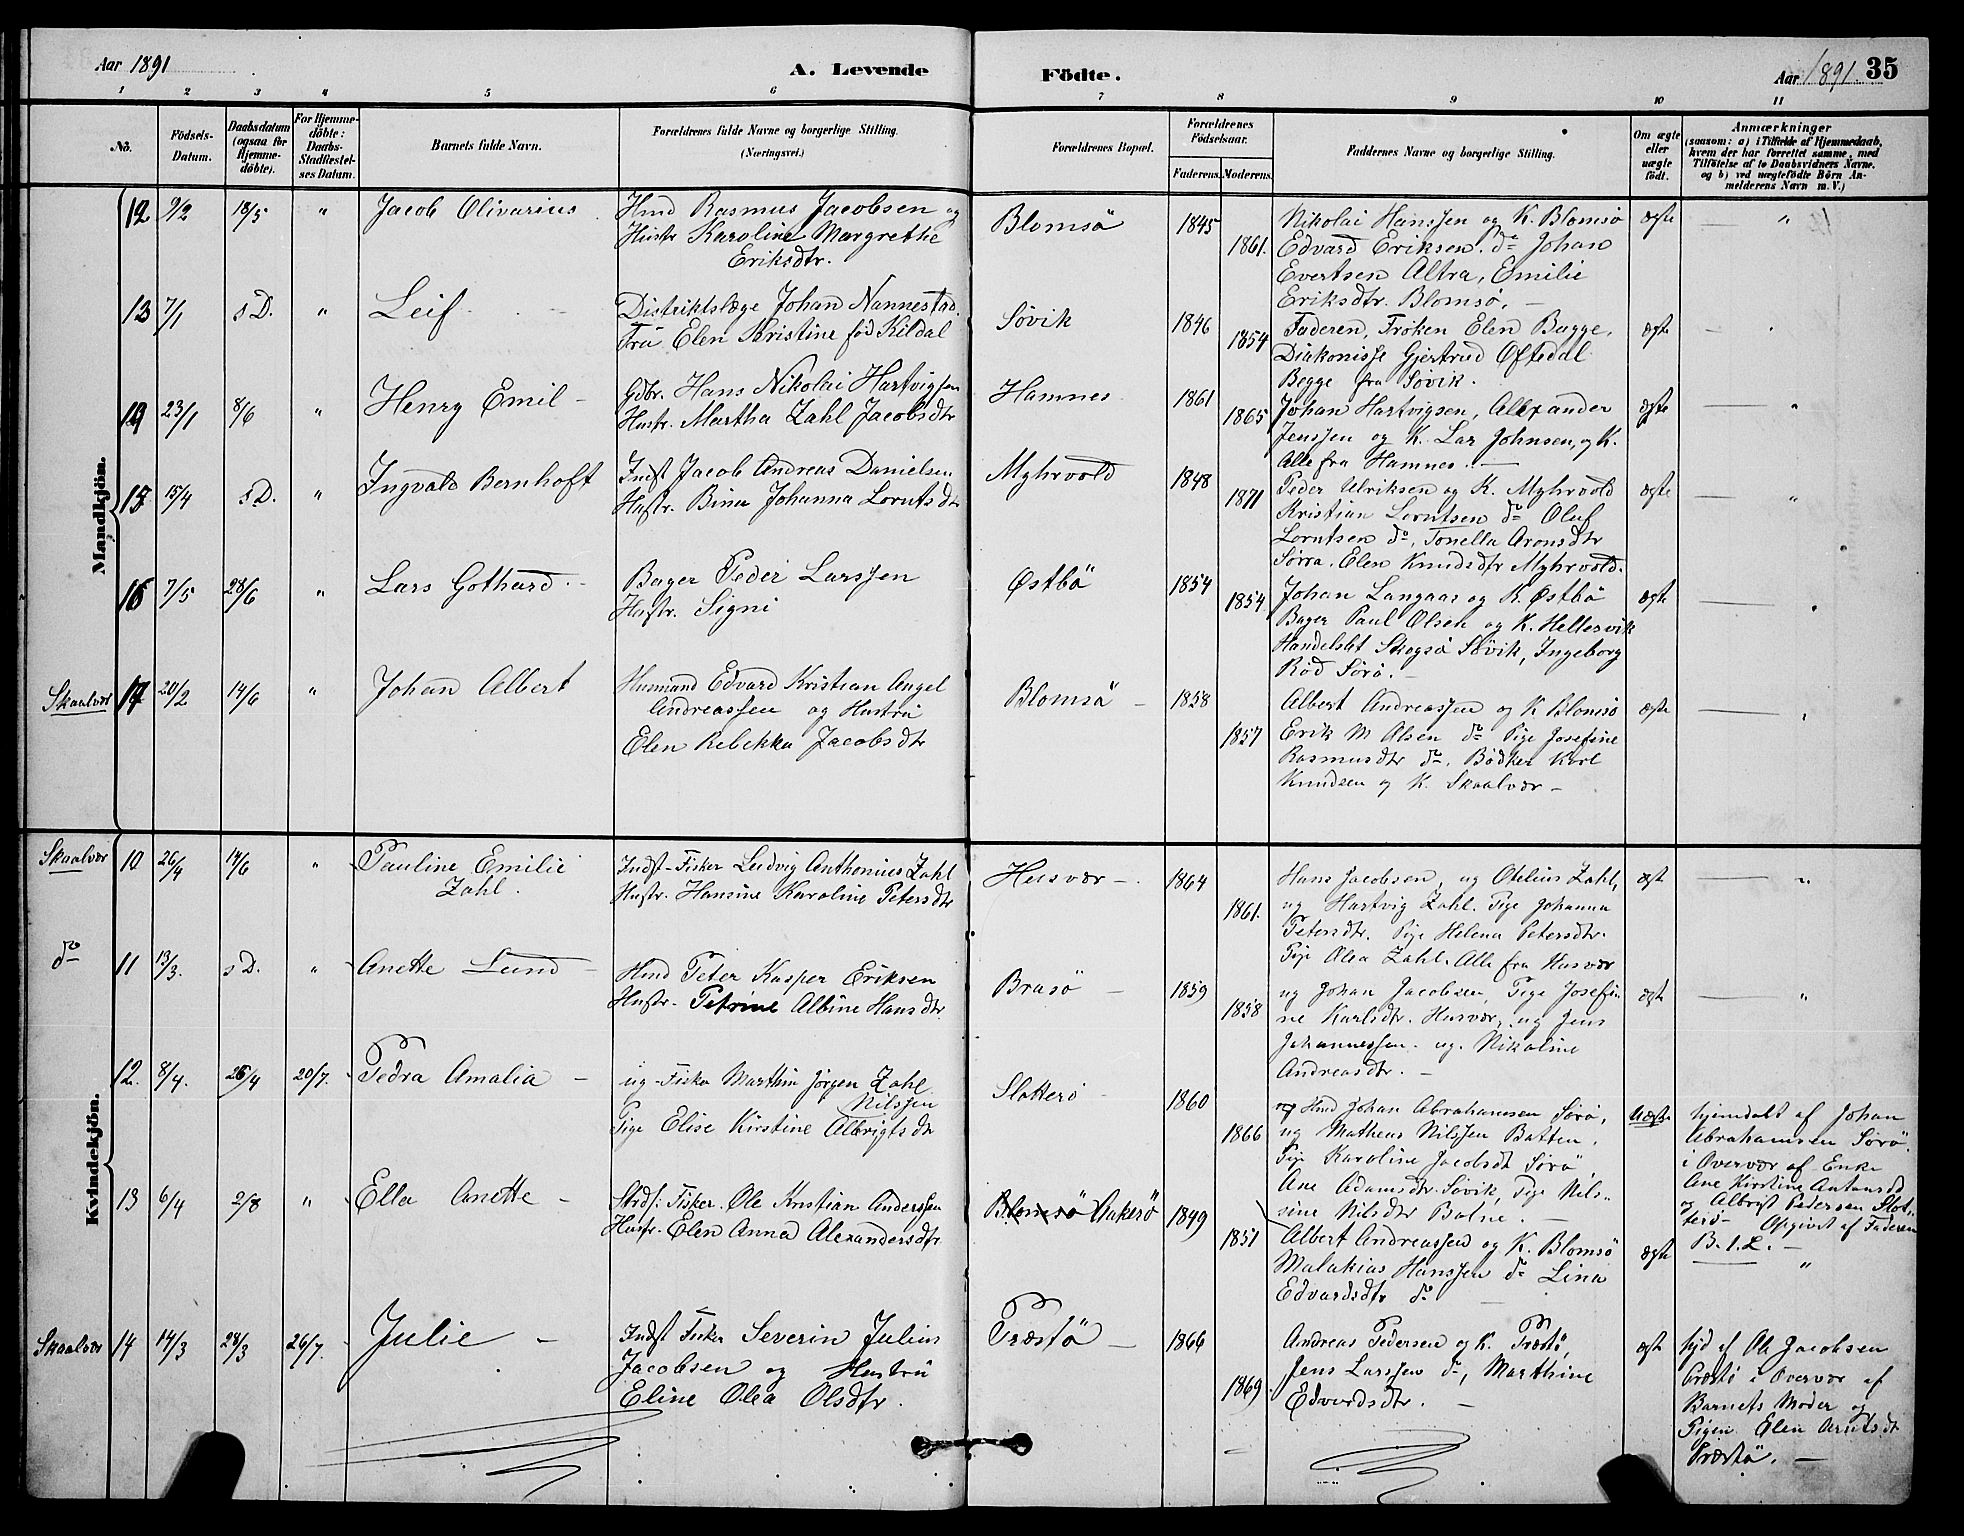 Aar 1891
A. Levende
Födte.
Aar 1891
35
1 2 3 4 5 6 7 8 9 10 11
No.
Födsels-
Datum.
Daabsdatum
(ogsaa for
Hjemme-
döbte).
For Hjemme-
döbte:
Daabs-
Stadfæstel-
ses Datum.
Barnets fulde Navn.
Forældrenes fulde Navne og borgerlige Stilling.
(Næringsvei.)
Forældrenes Bopæl.
Forældrenes
Födselsaar.
Faderens. Moderens.
Faddernes Navne og borgerlige Stilling.
Om ægte
eller
uægte
födt.
Anmærkninger
(saasom: a) i Tilfælde af Hjemmedaab,
hvem der har forrettet samme, med
Tilföielse af to Daabsvidners Navne,
og b) ved uægtefödte Börn An-
melderens Navn m. V.)
Mandkjön.
12 9/2 18/5 " Jacob Olivarius
Hmd Rasmus Jacobsen og
Hustr Karoline Margrethe
Eriksdtr.
Blomsö 1845
1861.
Nikolai Hanssen og K. Blomsö
Edvard Eriksen. do Johan
Evertsen Altra, Emilie
Eriksdtr. Blomsö. —
ægte — "
13 7/1 s D. " Leif
Distriktslæge Johan Nannestad
Fru Elen Kristine föd Kildal
Sövik 1846
1854
Faderen, Fröken Elen Bugge,
Diakonisse Gjertrud Oftedal
Begge fra Sövik.
ægte — "
14 23/1 8/6 " Henry Emil —
Gdbr. Hans Nikolai Hartvigsen
Hustr. Martha Zahl Jacobsdtr
Hamnes 1861
1865
Johan Hartvigsen, Alexander
Jenssen og K. Lar Johnsen, og K.
Alle fra Hamnes. —
ægte — "
15 15/4 s D. " Ingvald Bernhoft
Indst Jacob Andreas Danielsen
Hustr. Bina Johanna Lorntsdtr
Myhrvold 1848
1871
Peder Ulriksen og K. Myhrvold
Kristian Lorntsen do Oluf
Lorntsen do, Tonella Aronsdtr
Sörra, Elen Knudsdtr Myhrvold.
ægte — "
16 7/5 28/6 " Lars Gothard
Bager Peder Larssen
Hustr. Signi
Østbö 1854
1854
Johan Langaas og K. Østbö
Bager Paul Olsen og K. Hellesvik
Handelsbt Skogsö Sövik, Ingeborg
Röd Sörö. —
ægte — "
Skaalvær 17 20/2 14/6 " Johan Albert
Husmand Edvard Kristian Angel
Andreassen og Hustru
Elen Rebekka Jacobsdtr
Blomsö — 1858
1857
Albert Andreassen og K Blomsö
Erik M Olsen do Pige Josefine
Rasmusdtr do. Bödker Karl
Knudsen og K. Skaalvær —
ægte — "
Kvindekjön.
Skaalvær 10 26/4 14/6 " Pauline Emilie
Zahl.
Indst-Fisker Ludvig Anthonius Zahl
Hustr. Hansine Karoline Petersdtr
Husvær — 1864
1861.
Hans Jacobsen, ug Otelius Zahl,
ug Hartvig Zahl. Pige Johanna
Petersdtr. Pige Helena Petersdtr.
Pige Olea Zahl. Alle fra Husvær
ægt — "
do 11 13/3. s D. " Anette Lund —
Hmd Peter Kasper Eriksen
Hustr. Petrine Albine Hansdtr.
Brasö — 1859
1858
ug Johan Jacobsen, Pige Josefi
ne Karlsdtr. Husvær, ug Jens
Johannessen. ug. Nikoline
Andreasdtr. —
ægt — "
12. 8/4. 26/4 20/7. Pedra Amalia —
ug-Fisker Marthin Jörgen Zahl
Nilssen
Pige Elise Kirstine Albrigtsdtr
Slotterö 1860
1866
Hmd Johan Abrahamsen Sörö,
ug Matheus Nilssen Batten.
Pige Karoline Jacobsdt Sörö
Ane Adamsdtr Sövik, Pige Nils-
sine Nilsdtr Batne. —
Uægte hjemdøbt af Johan
Abrahamsen Sörö
i Overvær af Enke
Ane Kirstine Antonsdt
og Albrigt Pedersen Slot-
terö— Opgivet af Faderen
B. 1. L. —
13 6/4 2/8 " Ella Anette —
Strds: Fisker Ole Kristian Anderssen
Hustr. Elen Anna Alexandersdtr.
Blomsö Aakerö 1849
1851
Albert Andreassen og K. Blomsö
Malakias Hanssen do Lina
Edvardsdtr do —
ægt — "
Skaalvær 14 14/3 28/3 26/7. Julie —
Indst Fisker Severin Julius
Jacobsen og Hustru
Eline Olea Olsdtr.
Præstö — 1866
1869.
Andreas Pedersen og K. Præstö,
Jens Larssen do, Marthine
Edvardsdtr. —
ægt hjd af Ole Jacobsen
Præstö i Overvær af
Barnets Moder og
Pigen Elen Arntsdt
Præstö. —